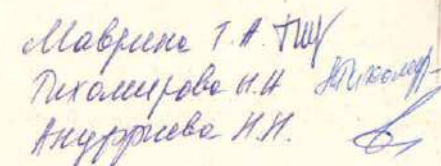 Маврина Т.А.
Тихомирова Н.Н.
Ануфриева Н.Н.